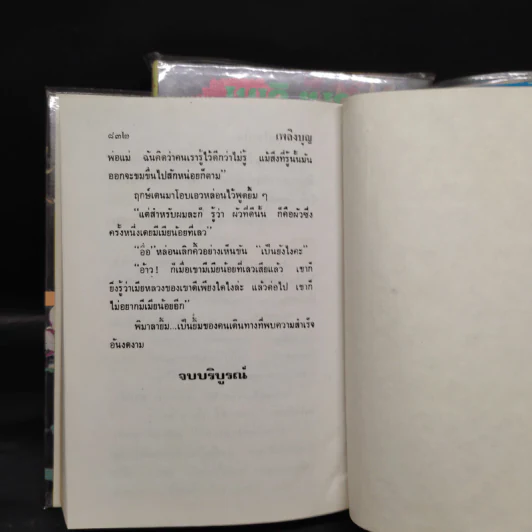 ๘๓๒ เพลิงบุญ
พ่อแม่ ฉันคิดว่าคนเรารู้ไว้ดีกว่าไม่รู้ แม้สิ่งที่รู้นั้นมัน
ออกจะขมขื่นไปสักหน่อยก็ตาม”
ฤกษ์เดนมาโอบเอวหล่อนไว้พูดยิ้ม ๆ
“แต่สำหรับผมละก็ รู้ว่า ผัวที่ดีนั้น ก็คือผัวซึ่ง
ครั้งหนึ่งเคยมีเมียน้อยที่เลว”
“อื้อ” หล่อนเลิกคิ้วอย่างเห็นขัน “เป็นยังไงคะ”
“อ้าว! ก็เมื่อเขามีเมียน้อยที่เลวเสียแล้ว เขาก็
ยิ่งรู้ว่าเมียหลวงของเขาดีเพียงใดไงล่ะ แล้วต่อไป เขาก็
ไม่อยากมีเมียน้อยอีก”
พิมาลายิ้ม...เป็นยิ้มของคนเดินทางที่พบความสำเร็จ
อันงดงาม
จบบริบูรณ์